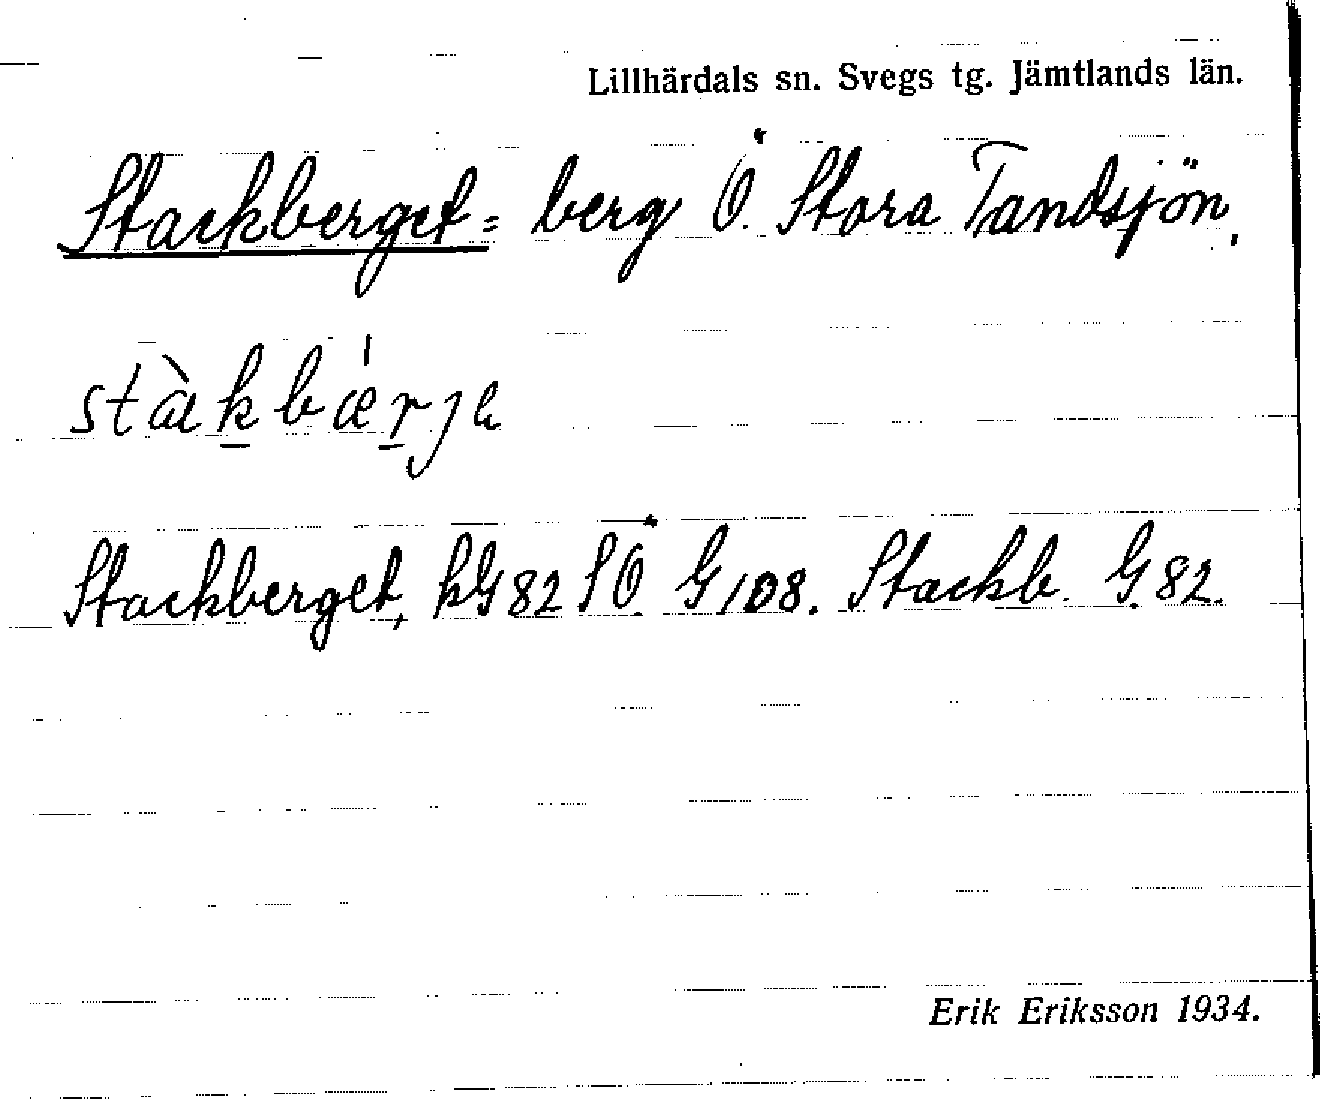 Lillhärdals sn. Svegs tg. Jämtlands län.
Stackberget = berg Ö. Stora Tandsjön.
stàkbǽrje
Stackberget, kG82 SÖ G108. Stackb. G.82.
Erik Eriksson 1934.